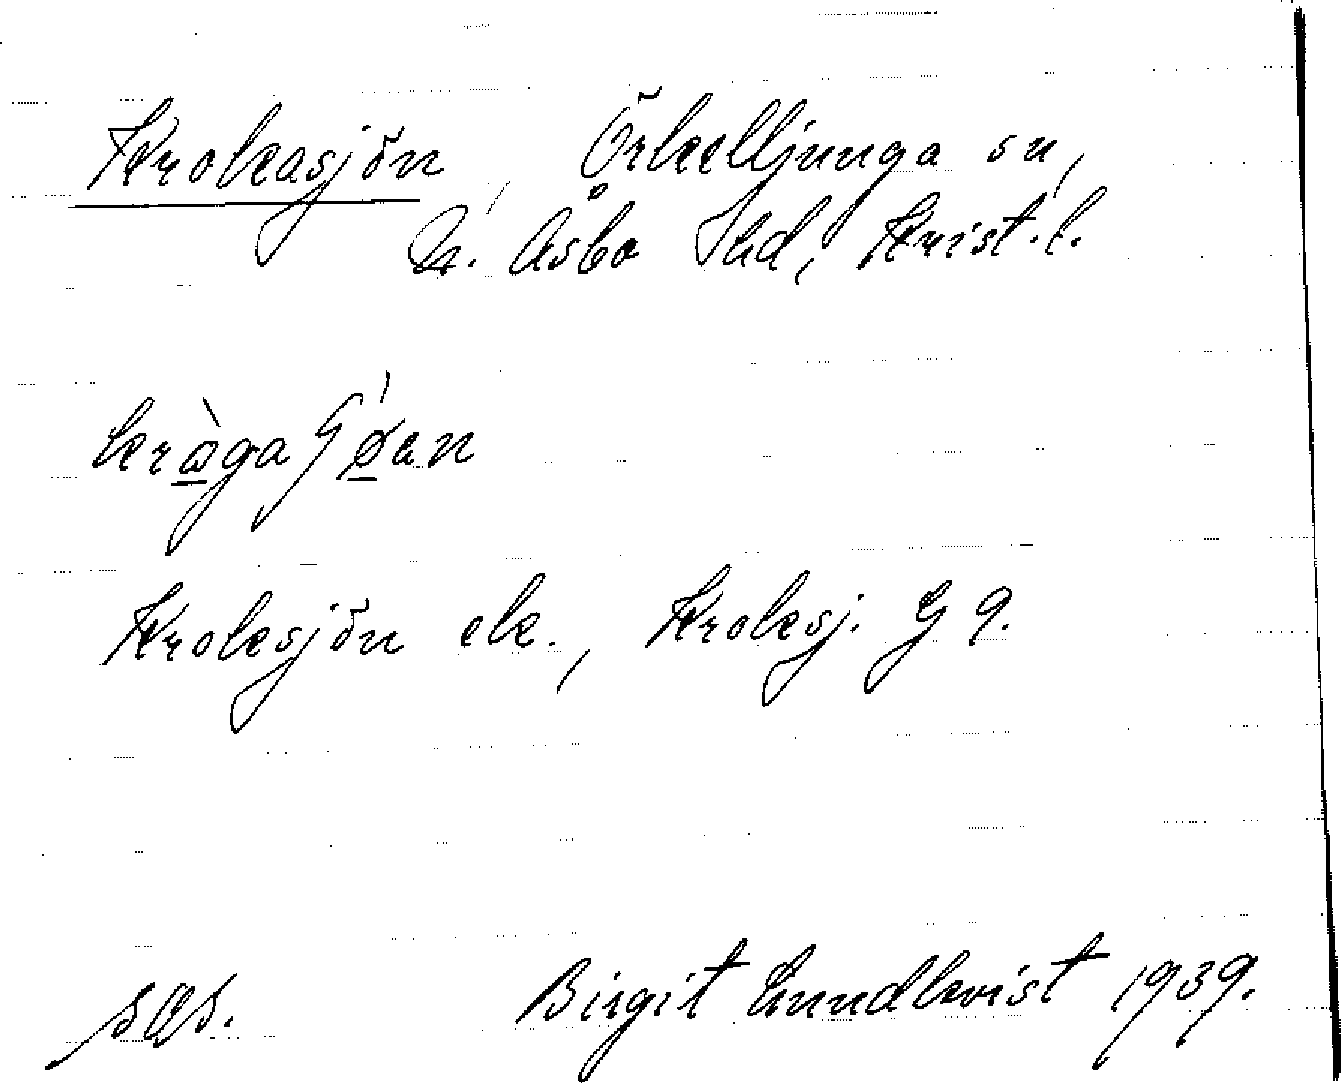 Krokasjön, Örkelljunga sn,
N. Åsbo hd, Krist. l.
Kroksjön ek., Kroksj. G 9.
Birgit Lundkvist 1939.